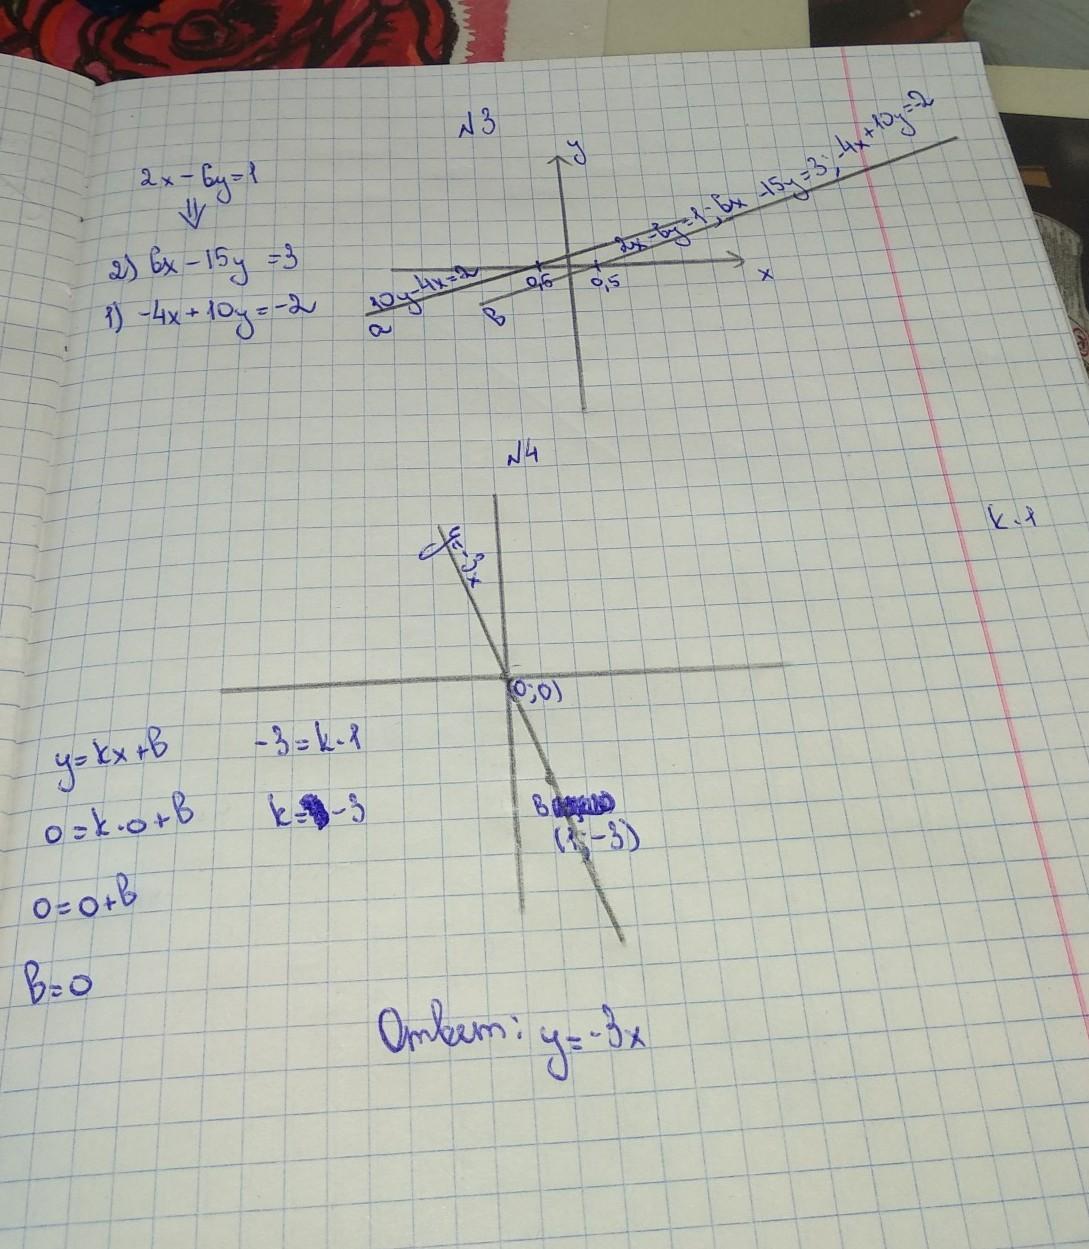 N3
2x - 6y = 1
⇓
2) 6x - 15y = 3
1) -4x + 10y = -2
y
x
10y - 4x = 2
a
b
0,5
0,5
2x - 6y = 1; 6x - 15y = 3; -4x + 10y = -2
N4
k·1
y = -3x
(0; 0)
B
(1; -3)
y = kx + b
0 = k·0 + b
0 = 0 + b
b = 0
-3 = k·1
k = -3
Ответ: y = -3x